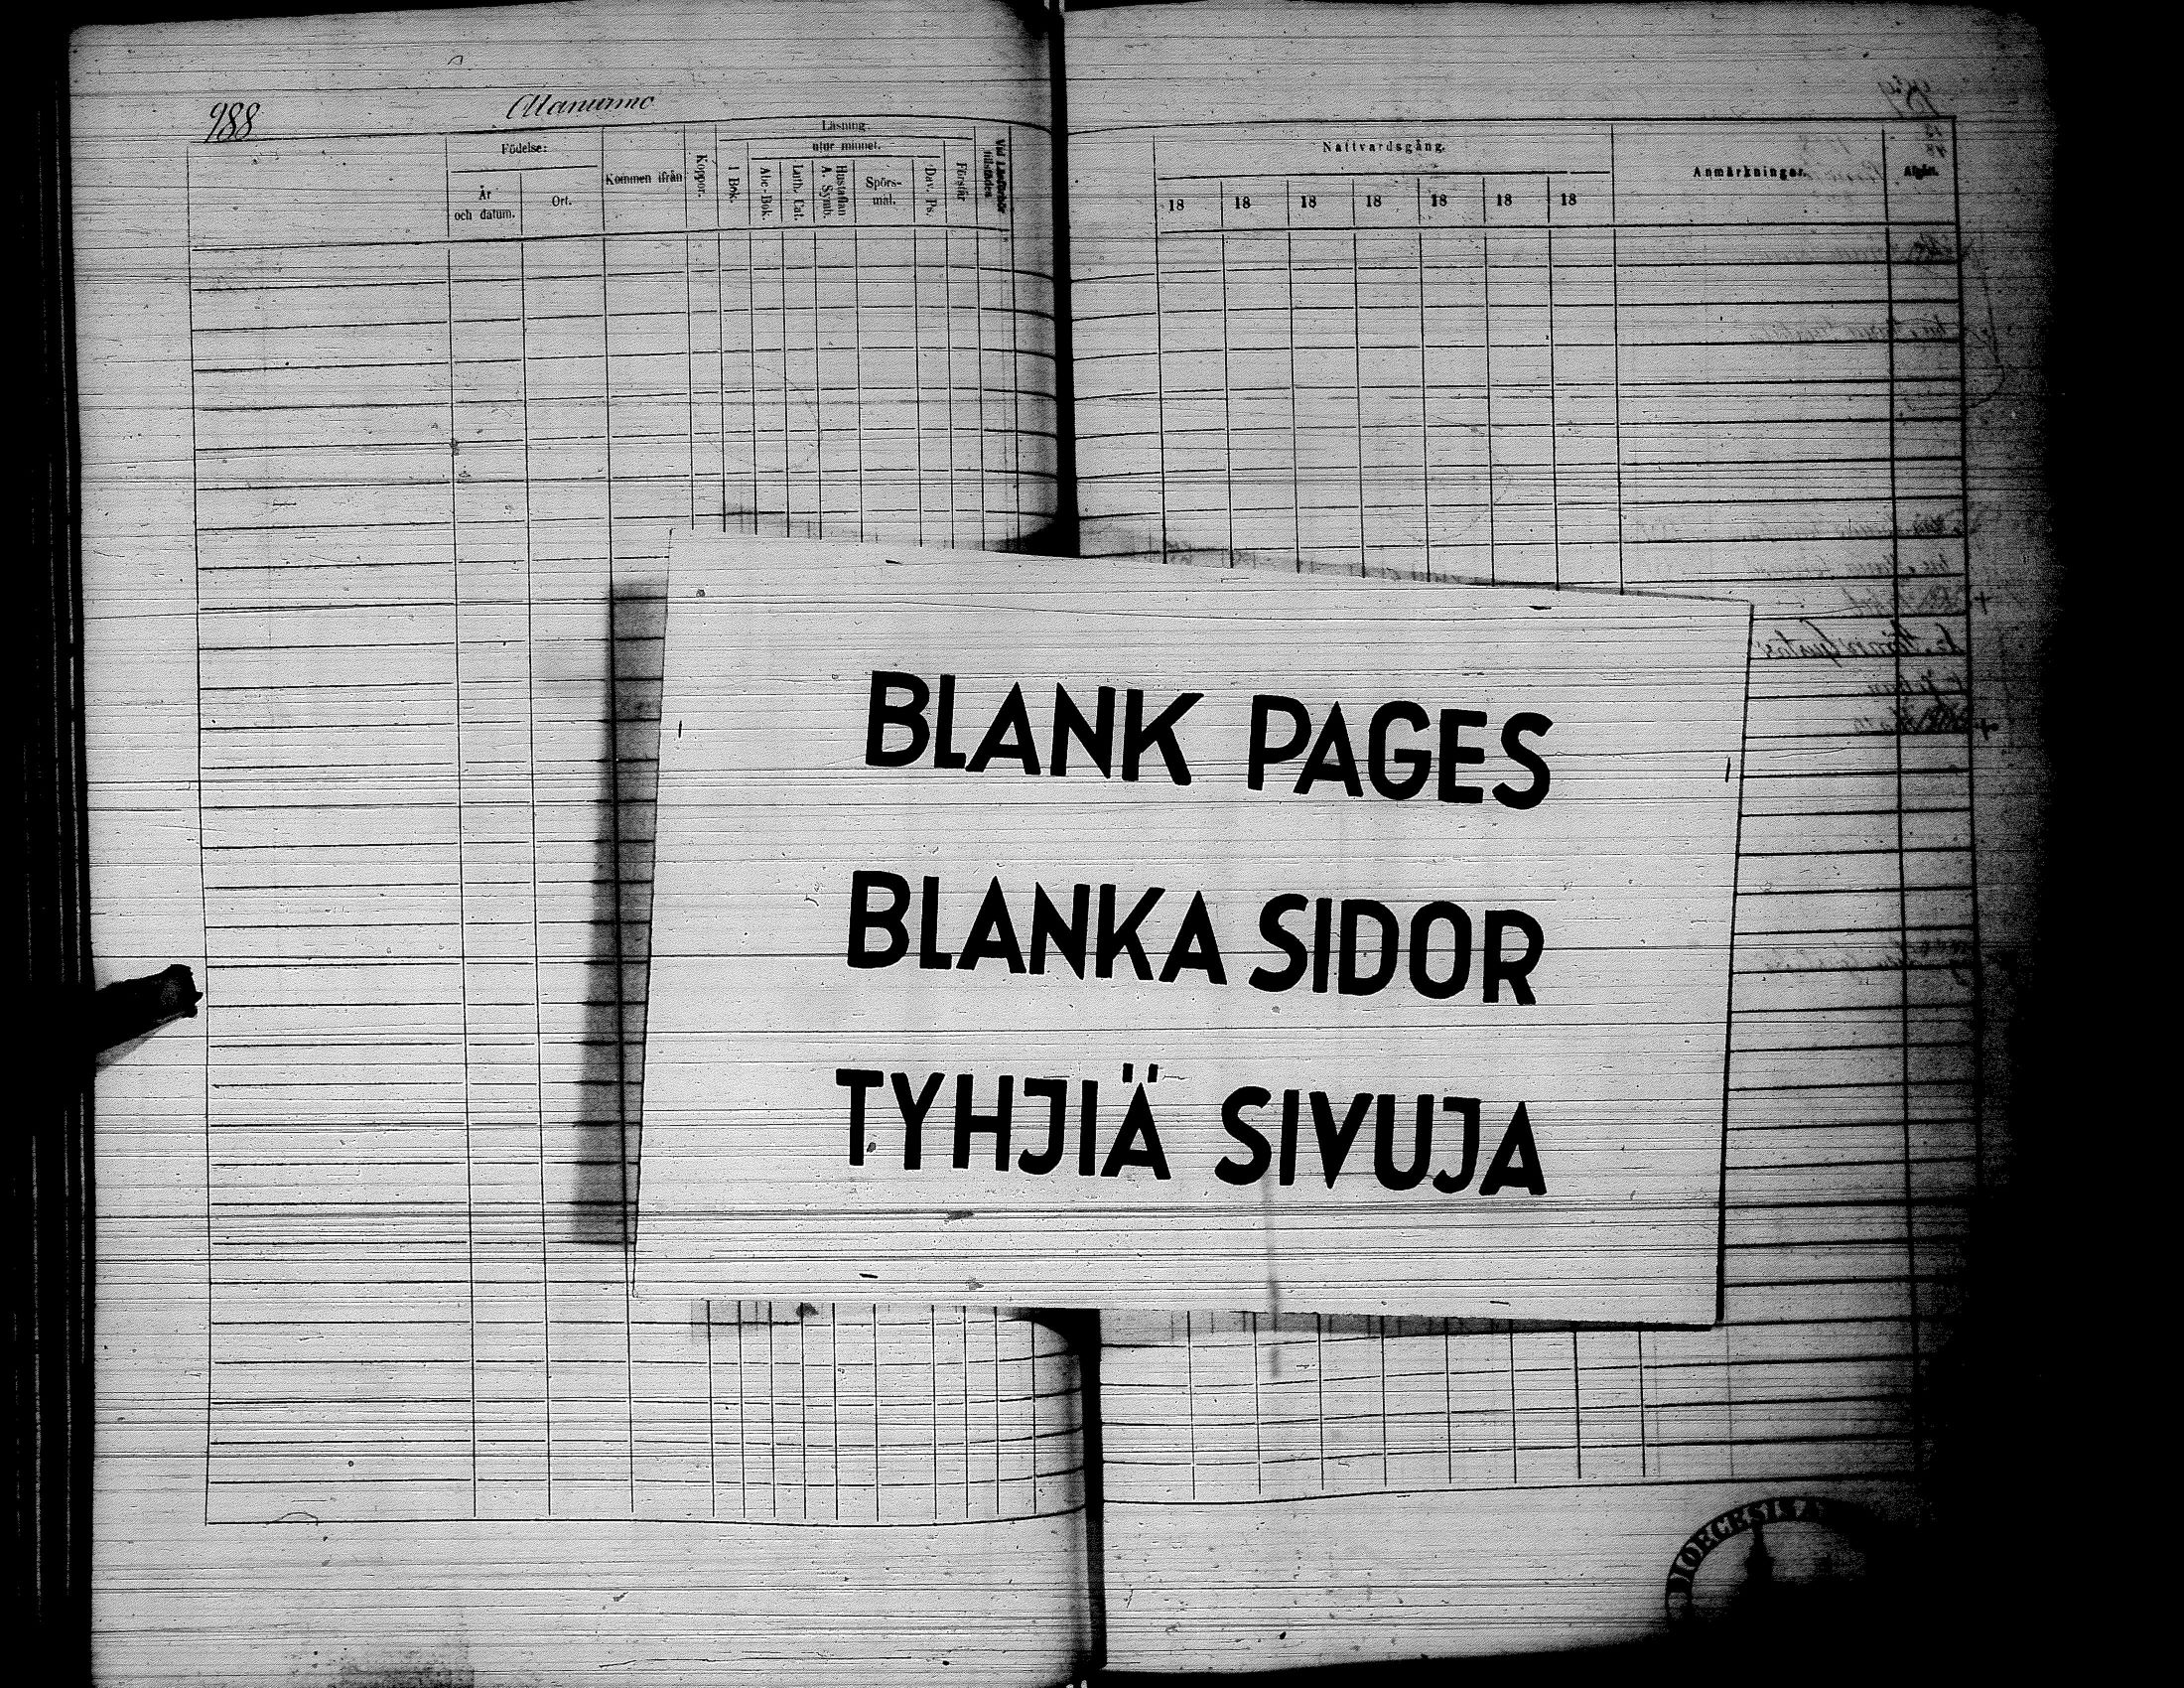 988
Födelse:
År
och datum.
Ort.
Kommen ifrån
Koppor.
Läsning
utur minnet.
I Bok.
Abc-Bok.
Luth. Cat.
Hustaflan
A. Symb.
Spörs-
mål.
Dav. Ps.
Förstår
Nattvardsgång.
18 18 18 18 18 18 18
Anmärkningar.
Afgått.
BLANK PAGES
BLANKA SIDOR
TYHJIÄ SIVUJA